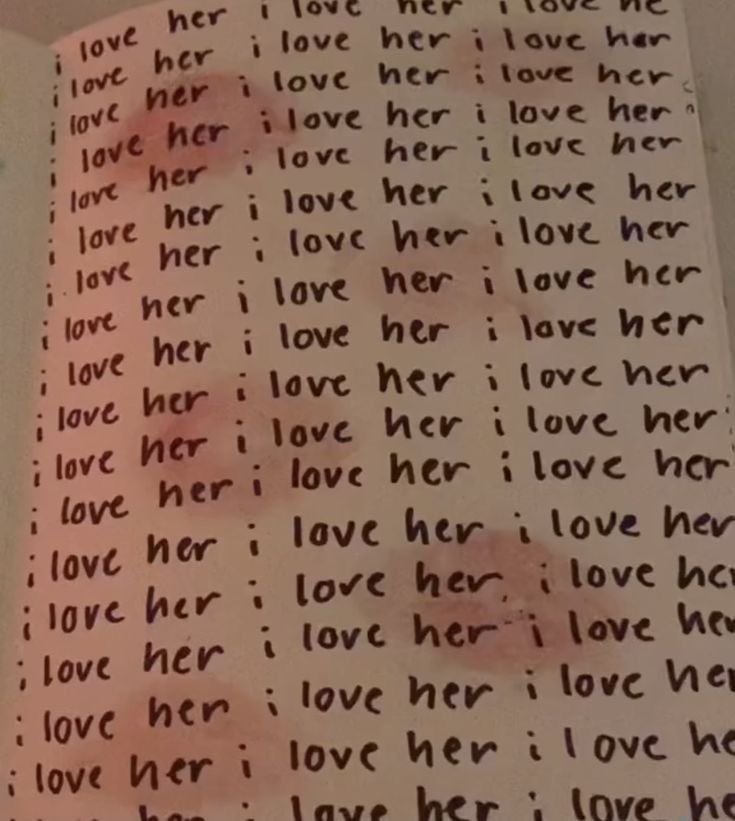 i love her i love her i love he
i love her i love her i love her
i love her i love her i love her
i love her i love her i love her
i love her i love her i love her
i love her i love her i love her
i love her i love her i love her
i love her i love her i love her
i love her i love her i love her
i love her i love her i love her
i love her i love her i love her
i love her i love her i love her
i love her i love her i love her
i love her i love her i love he
i love her i love her i love he
i love her i love her i love he
i love her i love her i love he
her i love her i love he